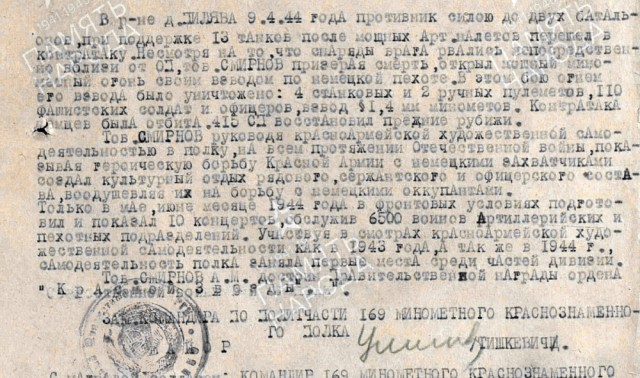 В р-не д.ПИЛЯВА 9.4.44 года противник силою до двух батальо-
онов,при поддержке 13 танков после мощных Арт.налетов перешел в
контратаку.Несмотря на то,что снаряды врага рвались непосредствен-
но вблизи от ОП,тов.СМИРНОВ призерая смерть,открыл мощный мино-
метный огонь своим взводом по немецкой пехоте.В этом бою огнем
его взвода было уничтожено: 4 станковых и 2 ручных пулеметов,110
фашистских солдат и офицеров,взвод 81,4 мм минометов. Контратака
немцев была отбита.415 СП восстановил прежние рубижи.
Тов.СМИРНОВ руководя красноармейской художественной само-
деятельностью в полку,на всем протяжении Отечественной войны,пока-
зывая героическую борьбу Красной Армии с немецкими захватчиками
создал культурный отдых рядового,сержантского и офицерского соста-
ва,воодушевляя их на борьбу с немецкими оккупантами.
Только в мае,июне месяце 1944 года в фронтовых условиях подгото-
вил и показал 10 концертов,обслужив 6500 воинов Артиллерийских и
пехотных подразделений. Участвуя в смотрах красноармейской худо-
жественной самодеятельности как 1943 года,а так же в 1944 г.,
самодеятельность полка заняла первые места среди частей дивизии.
Тов.СМИРНОВ А.М. достоин правительственной награды ордена
"Красной Звезды".
ЗАМ.КОМАНДИРА ПО ПОЛИТЧАСТИ 169 МИНОМЕТНОГО КРАСНОЗНАМЕННО-
ГО ПОЛКА
/ТИШКЕВИЧ/.
КОМАНДИР 169 МИНОМЕТНОГО КРАСНОЗНАМЕННОГО